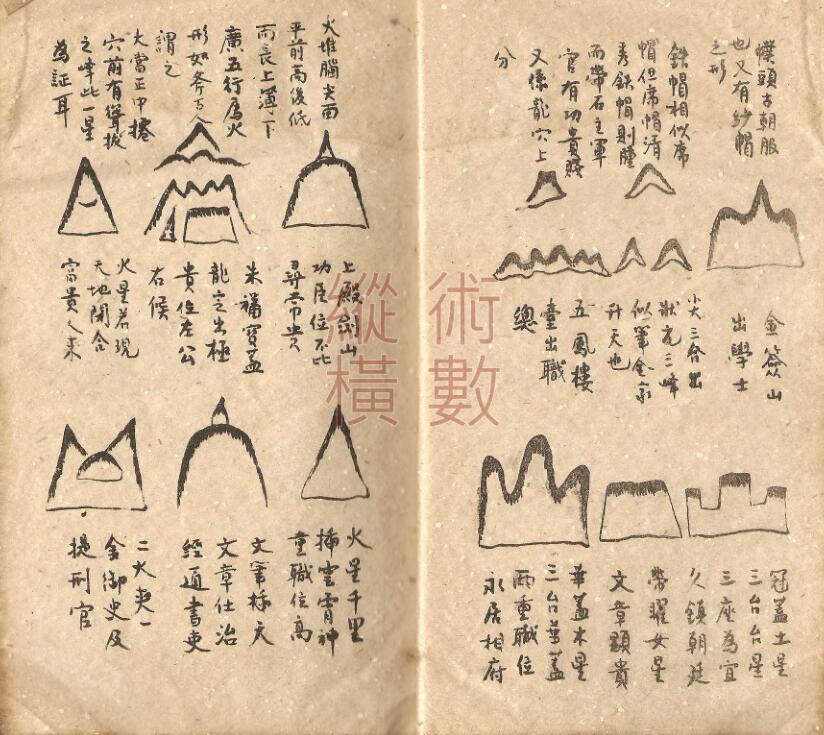 幞頭古朝服
也又有紗帽
之形
鉄帽相似席
帽但席帽清
秀鉄帽則腫
而帶石主軍
官有功貴賤
又係龍穴上
分
金簽山
出學士
尖三台出
狀元三峰
似筆金家
升天也
五鳳樓
臺出職
總
冠蓋土星
三台台星
三座為宜
久鎮朝廷
帶曜女星
文章顯貴
華蓋木星
三台華蓋
両重職位
永居相府
火堆腦尖而
平前高後低
而長上薄下
廣五行属火
形如斧古人
謂之
大當正中擡
穴前有聳拔
之峰此一星
為証耳
上殿劍山
功臣位不比
尋常貴人
朱福寶蓋
龍定出極
貴位左公
右候
火星若現
天地開合
富貴人來
火星千里
插雲霄神
童職位高
文筆标天
文章仕治
經通書吏
二火夹一
金御史及
提刑官
術數
縱橫